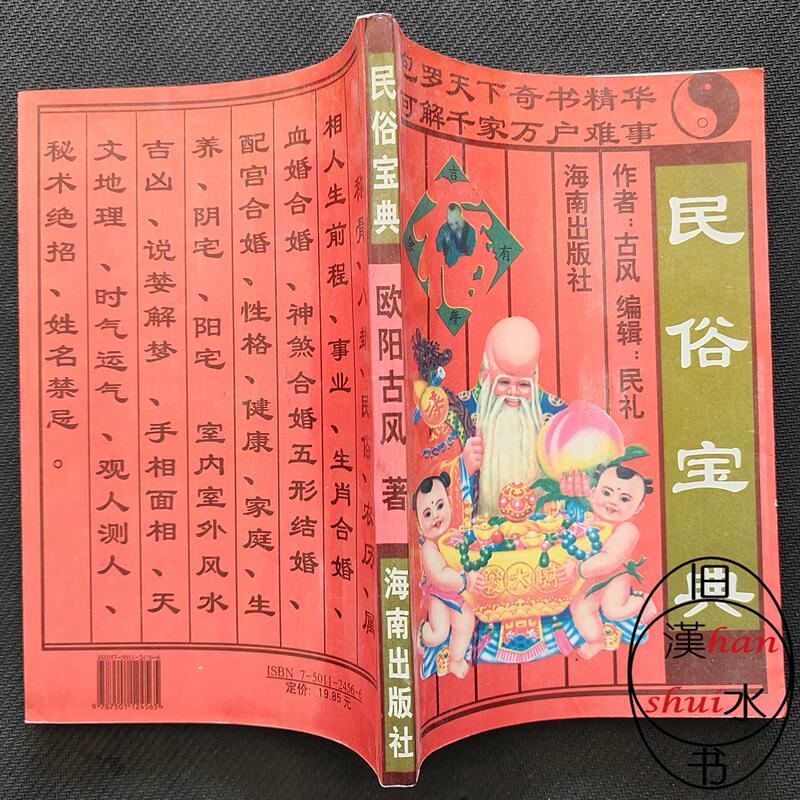 包罗天下奇书精华
可解千家万户难事
民俗宝典
作者：古风 编辑：民礼
海南出版社
吉
有
余
年
福
民俗宝典
欧阳古风 著
海南出版社
称骨、八卦、民俗、农历、属
相人生前程、事业、生肖合婚、
血婚合婚、神煞合婚五形结婚、
配宫合婚、性格、健康、家庭、生
养、阴宅、阳宅 室内室外风水
吉凶、说婪解梦、手相面相、天
文地理、时气运气、观人测人、
秘术绝招、姓名禁忌。
ISBN7-5011-2456-6
9 787501 124565
ISBN 7-5011-2456-6
定价: 19.85 元
旧
漢han
shui水
书